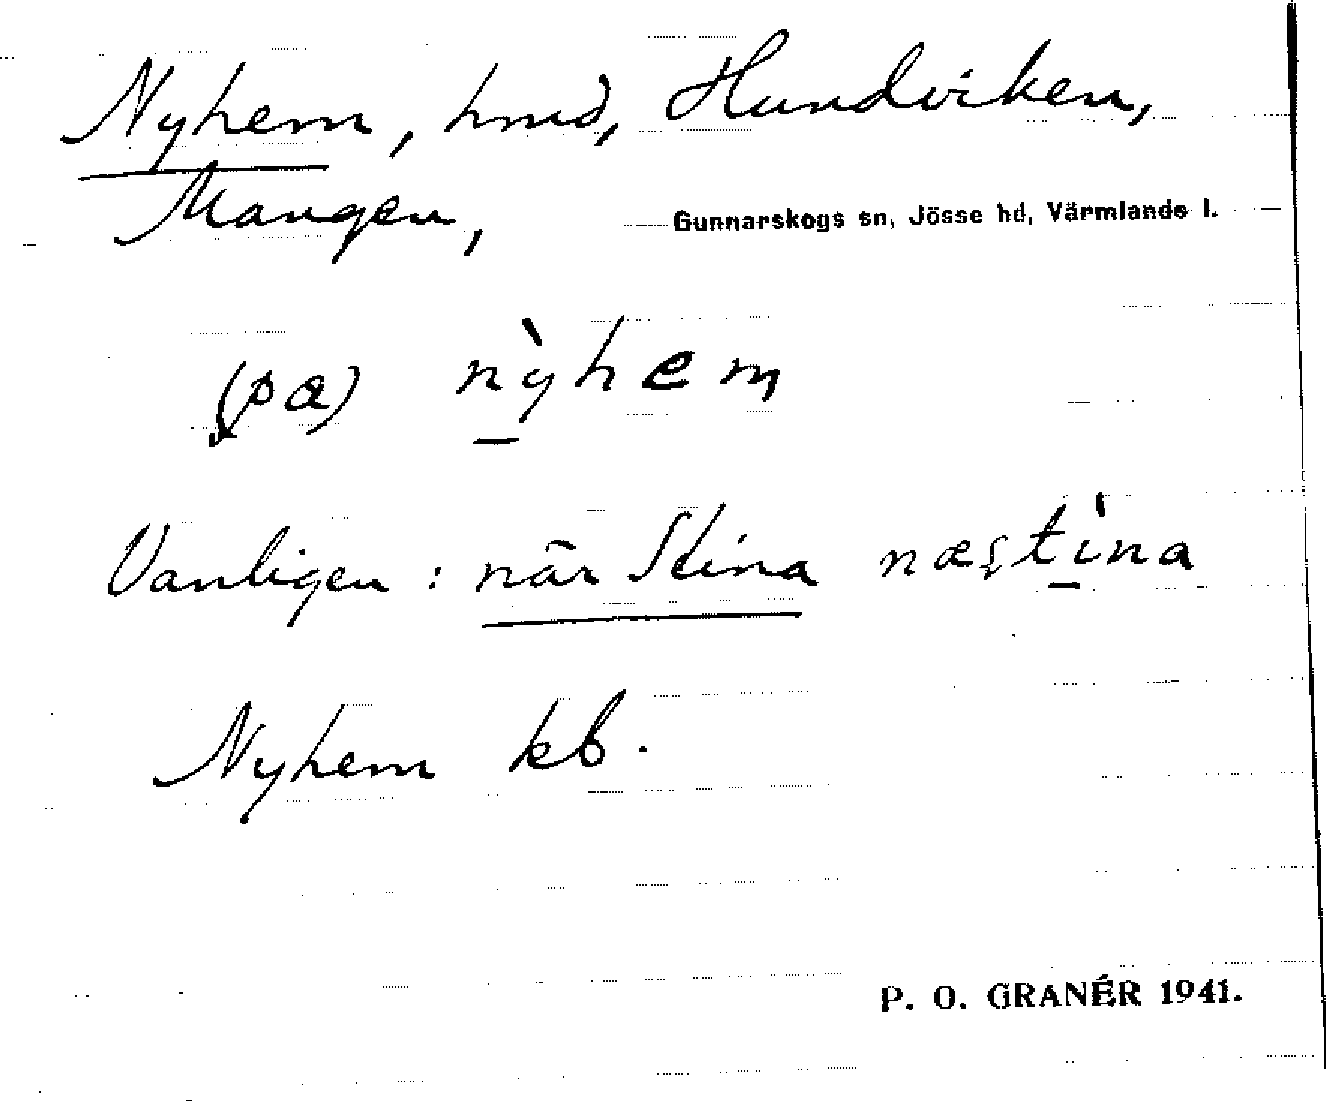 Nyhem, hmd, Hundviken,
Mangen,
Gunnarskogs sn, Jösse hd, Värmlands l.
(pa) nỳhem
Vanligen: när Stina næʂtìna
Nyhem kb.
P. O. GRANÉR 1941.